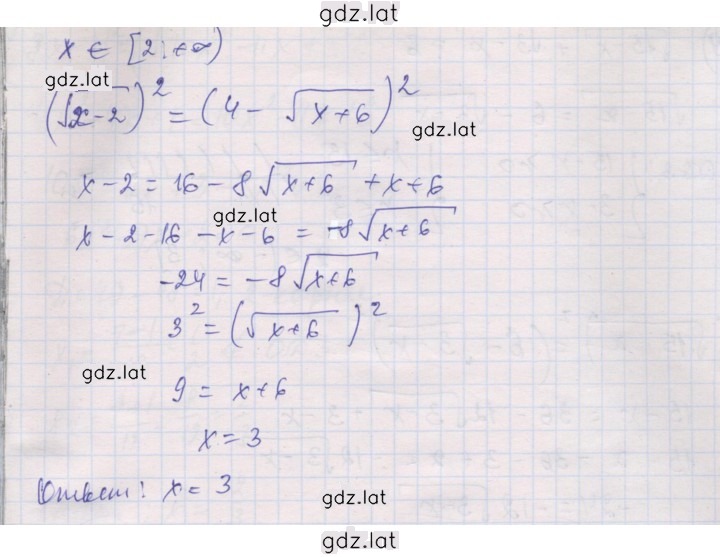 gdz.lat
x ∈ [2; +∞)
gdz.lat
(√x-2)² = (4 - √x+6)²
gdz.lat
x - 2 = 16 - 8√x+6 + x + 6
gdz.lat
x - 2 - 16 - x - 6 = -8√x+6
-24 = -8√x+6
3² = (√x+6)²
gdz.lat
9 = x + 6
x = 3
Ответ: x = 3
gdz.lat
gdz.lat